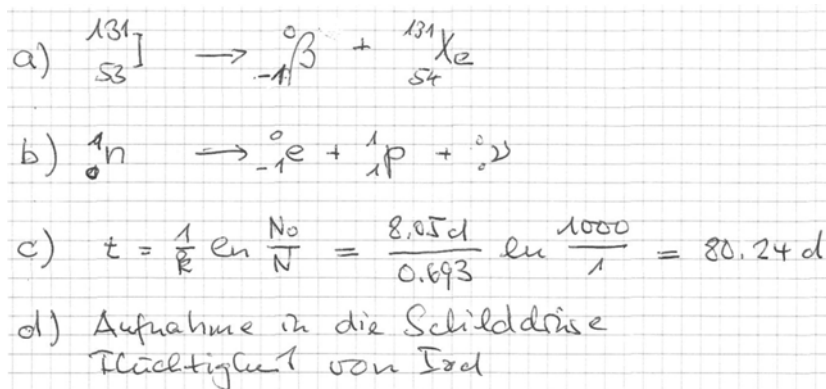 a) ¹³¹₅₃I → ⁰₋₁β + ¹³¹₅₄Xe
b) ¹₀n → ⁰₋₁e + ¹₁p + ⁰₀ν
c) t = 1/k ln N₀/N = 8.05d/0.693 ln 1000/1 = 80.24 d
d) Aufnahme in die Schilddrüse
Flüchtigkeit von Iod